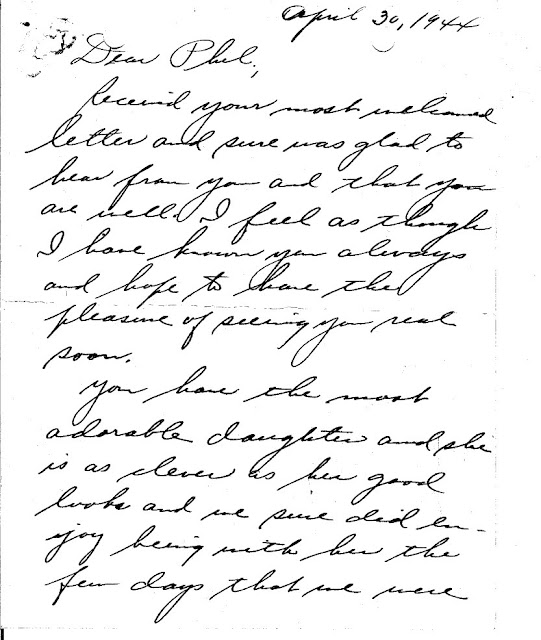 April 30, 1944
Dear Phil,
Received your most welcomed
letter and sure was glad to
hear from you and that you
are well. I feel as though
I have known you always
and hope to have the
pleasure of seeing you real
soon.
You have the most
adorable daughter and she
is as clever as her good
looks and we sure did en-
joy being with her the
few days that we were